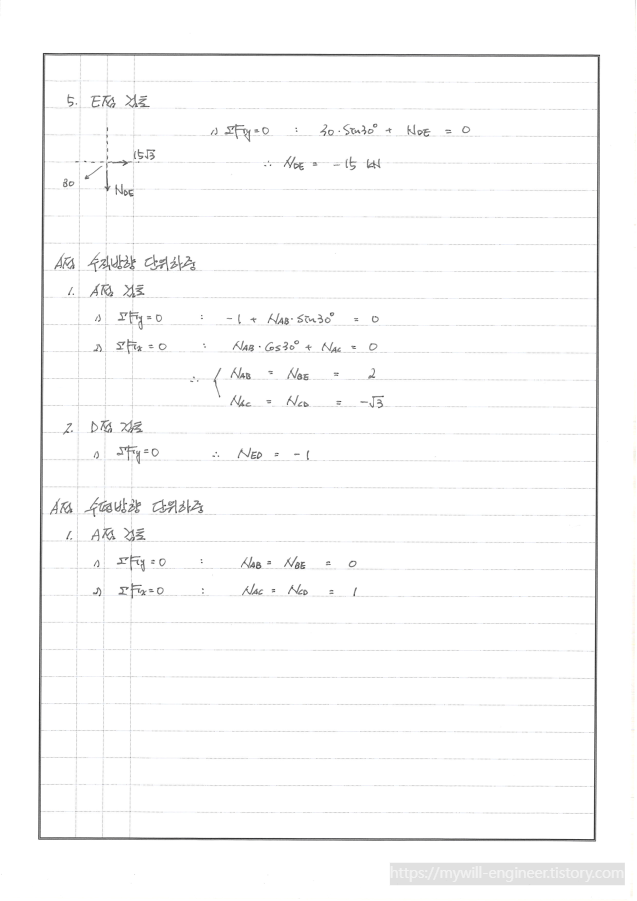 5. E점 검토
1) ΣFy=0 : 30·Sin30° + NDE = 0
15√3
∴ NDE = -15 kN
30
NDE
A점 수직방향 단위하중
1. A점 검토
1) ΣFy=0 : -1 + NAB·Sin30° = 0
2) ΣFx=0 : NAB·Cos30° + NAC = 0
∴ { NAB = NBE = 2
NAC = NCD = -√3
2. D점 검토
1) ΣFy=0 ∴ NED = -1
A점 수평방향 단위하중
1. A점 검토
1) ΣFy=0 : NAB = NBE = 0
2) ΣFx=0 : NAC = NCD = 1
https://mywill-engineer.tistory.com